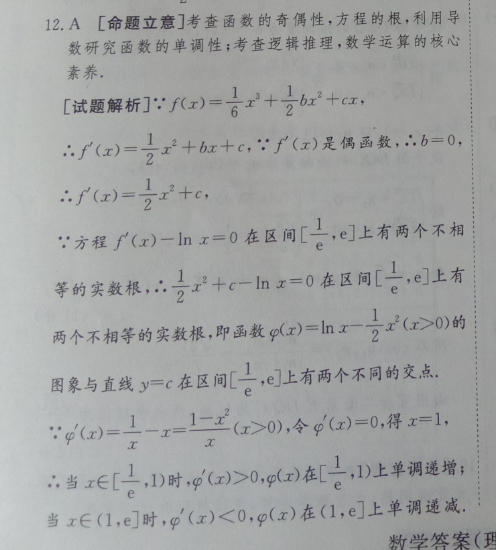 12. A [命题立意]考查函数的奇偶性,方程的根,利用导
数研究函数的单调性;考查逻辑推理,数学运算的核心
素养.
[试题解析]∵f(x)=1/6 x³+1/2 bx²+cx,
∴f′(x)=1/2 x²+bx+c,∵f′(x)是偶函数,∴b=0,
∴f′(x)=1/2 x²+c,
∵方程 f′(x)-ln x=0 在区间[1/e,e]上有两个不相
等的实数根,∴1/2 x²+c-ln x=0 在区间[1/e,e]上有
两个不相等的实数根,即函数φ(x)=ln x-1/2 x²(x>0)的
图象与直线 y=c 在区间[1/e,e]上有两个不同的交点.
∵φ′(x)=1/x-x=(1-x²)/x(x>0),令φ′(x)=0,得x=1,
∴当x∈[1/e,1)时,φ′(x)>0,φ(x)在[1/e,1)上单调递增;
当x∈(1,e]时,φ′(x)<0,φ(x)在(1,e]上单调递减.
数学答案(理